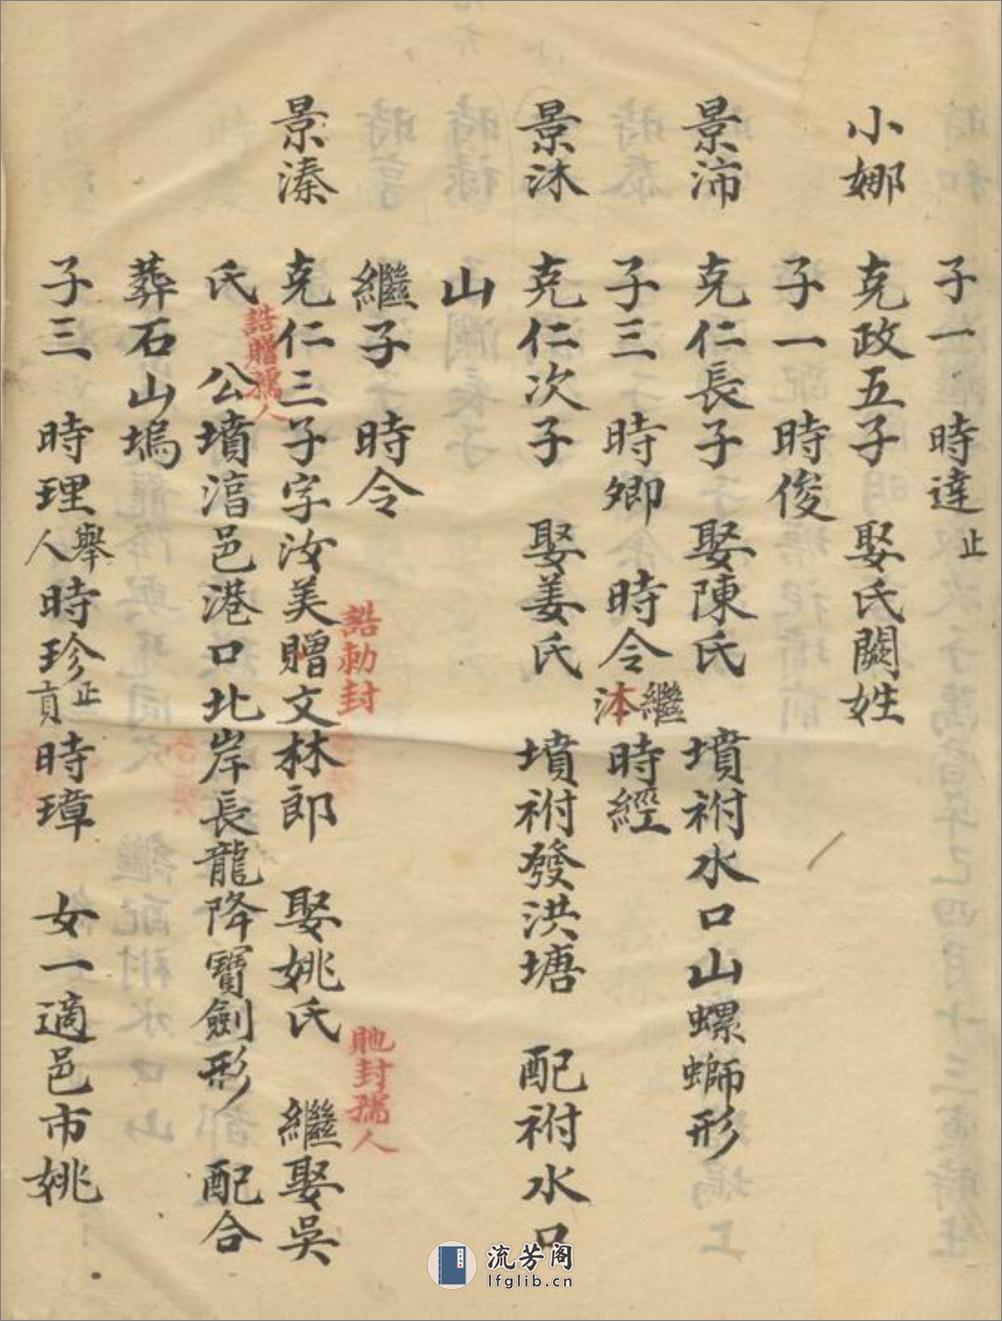 子一 時達止
小娜 克政五子 娶氏闕姓
子一 時俊
景沛 克仁長子 娶陳氏 墳祔水口山螺螄形
子三 時卿 時令繼沐 時經
景沐 克仁次子 娶姜氏 墳祔發洪塘 配祔水口
山
繼子 時令
景溱 克仁三子字汝美贈文林郎 娶姚氏 繼娶吳
誥勅封
貤封孺人
氏 公墳湻邑港口北岸長龍降寶劍形 配合
誥贈孺人
葬石山塢
子三 時理舉人 時珍正貢 時璋 女一適邑市姚
流芳阁
lfglib.cn